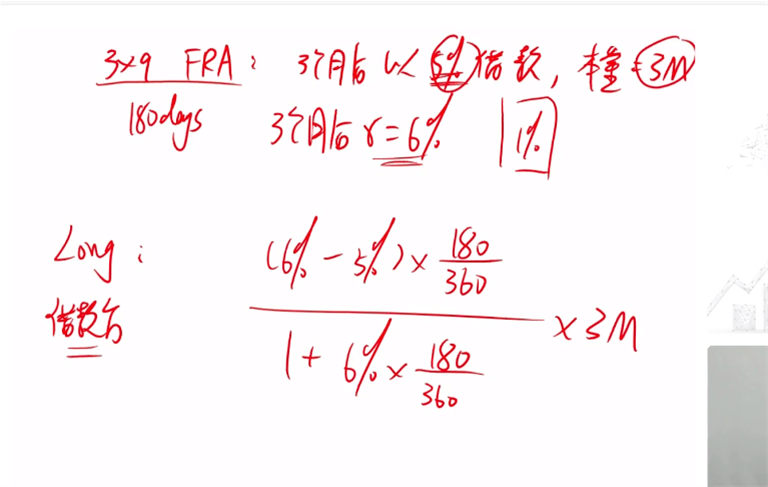 3×9 FRA: 3个月后以5%借款,本金=3M
180days 3个月后 r=6% 1%
Long: (6%-5%)×180/360
借款方 ×3M
1+6%×180/360